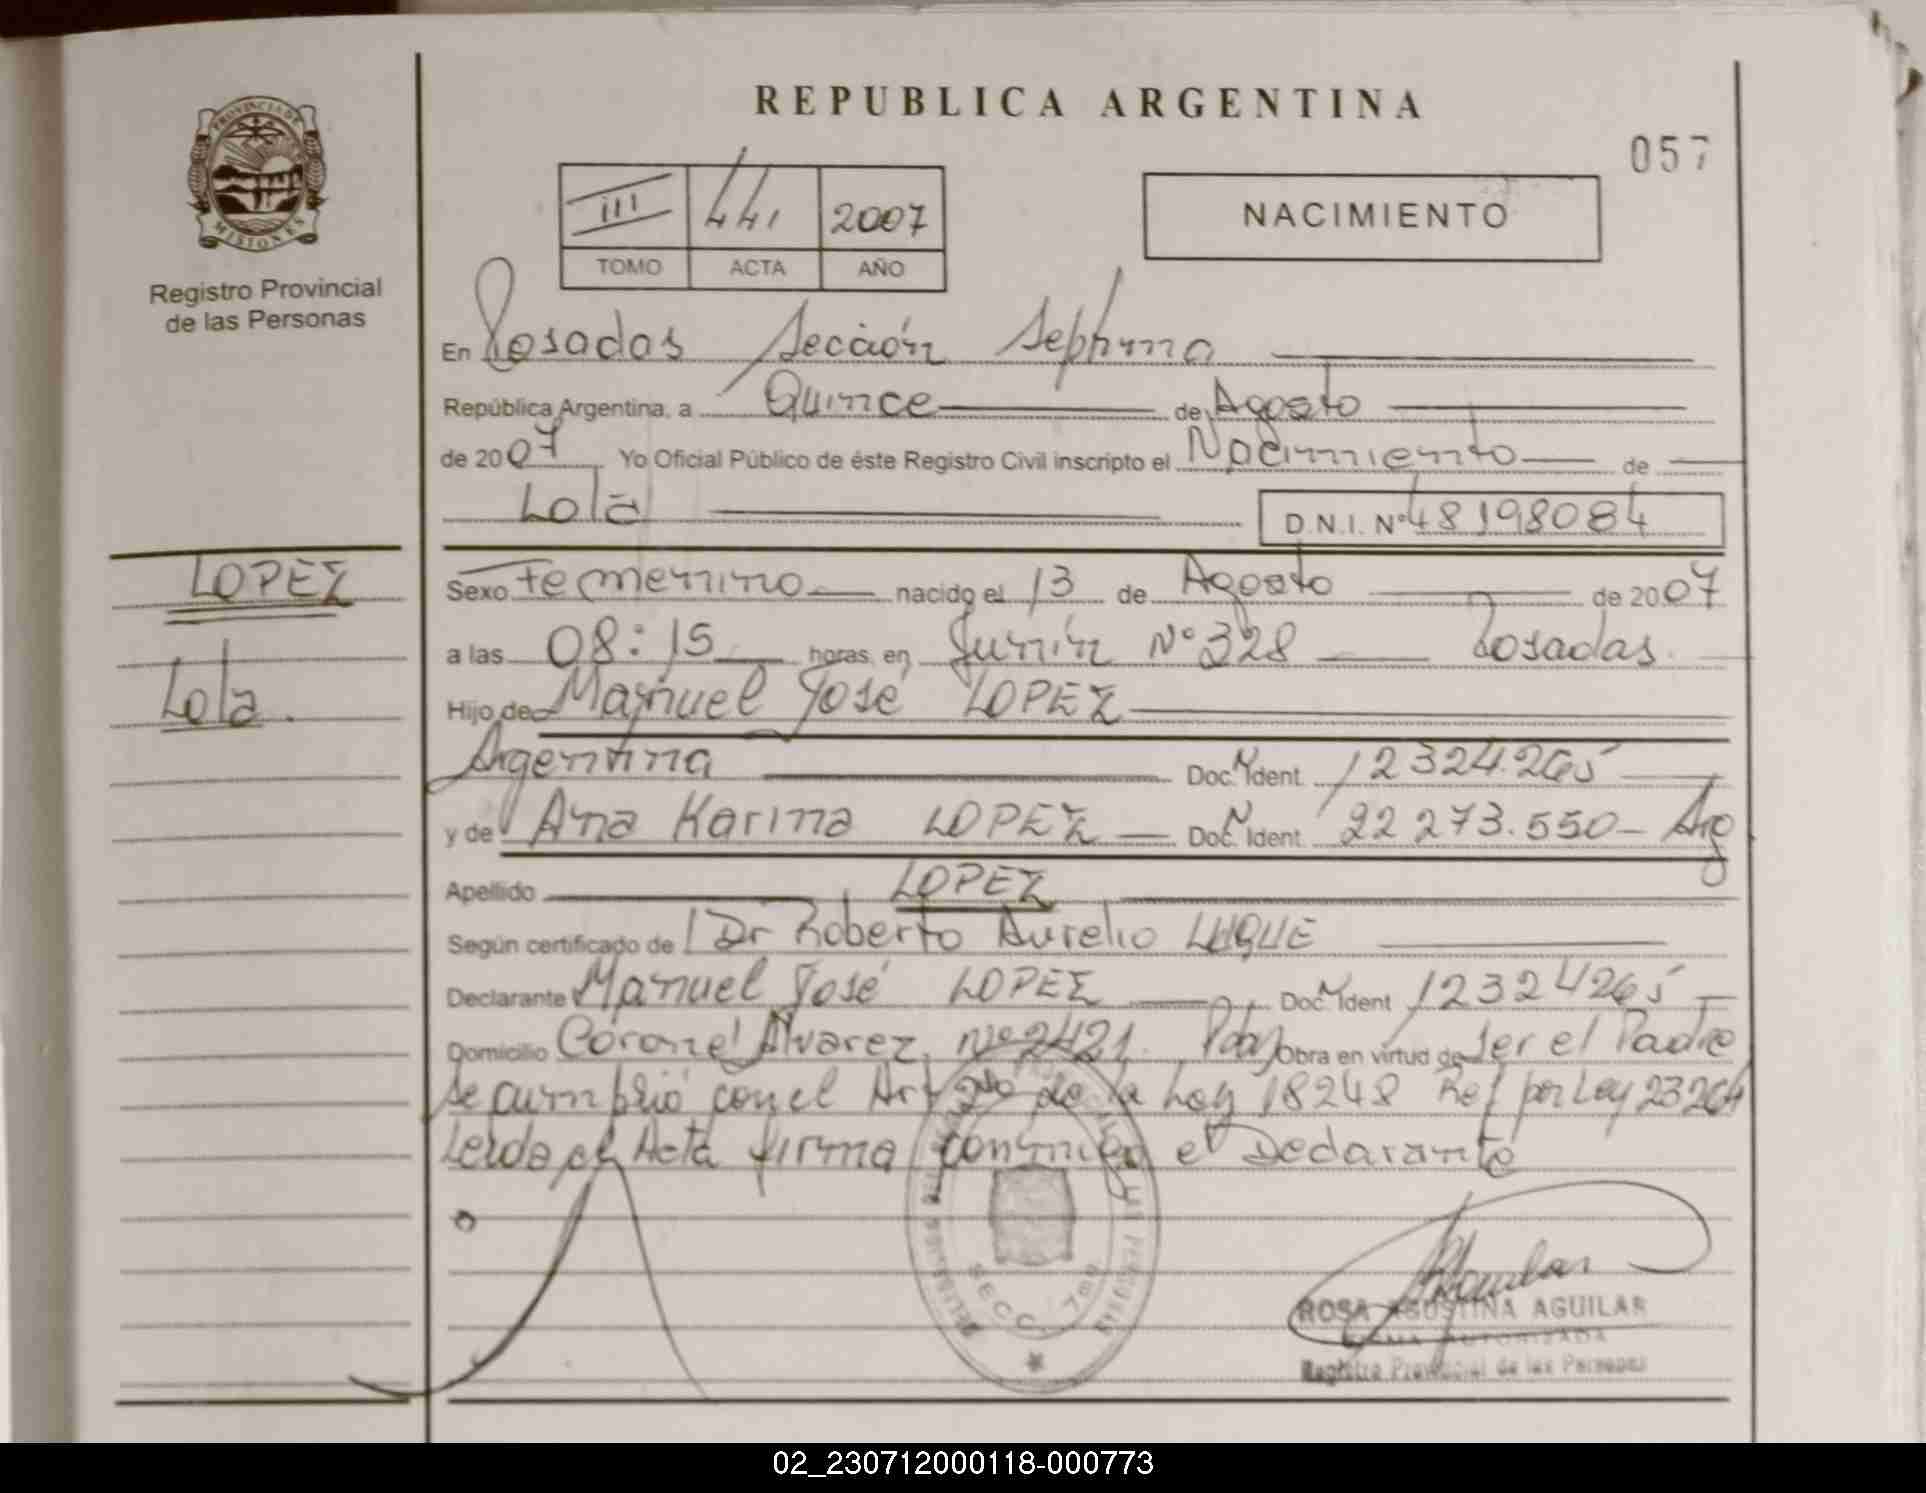 PROVINCIA DE
MISIONES
Registro Provincial
de las Personas
REPUBLICA ARGENTINA
057
III 441 2007
TOMO ACTA AÑO
NACIMIENTO
En Posadas Sección Septima
República Argentina, a Quince de Agosto
de 2007 Yo Oficial Público de éste Registro Civil inscripto el Nacimiento de
Lola D.N.I. Nº 48198084
LOPEZ
Lola.
Sexo Femenino nacido el 13 de Agosto de 2007
a las 08:15 horas, en Junín Nº 328 Posadas.
Hijo de Manuel José LOPEZ
Argentina Doc. Ident. 12324.265
y de Ana Karina LOPEZ Doc. Ident. 22 273.550 - Arg
Apellido LOPEZ
Según certificado de Dr Roberto Aurelio LUQUE
Declarante Manuel José LOPEZ Doc. Ident 12324265
Domicilio Coronel Alvarez Nº 2421. Pdas Obra en virtud de ser el Padre
se cumplió con el Art 2do de la Ley 18248 Ref por Ley 23264
Leida el Acta firma conmigo el Declarante
SECC. 7ma
ROSA AGUSTINA AGUILAR
FIRMA AUTORIZADA
Registro Provincial de las Personas
02_230712000118-000773